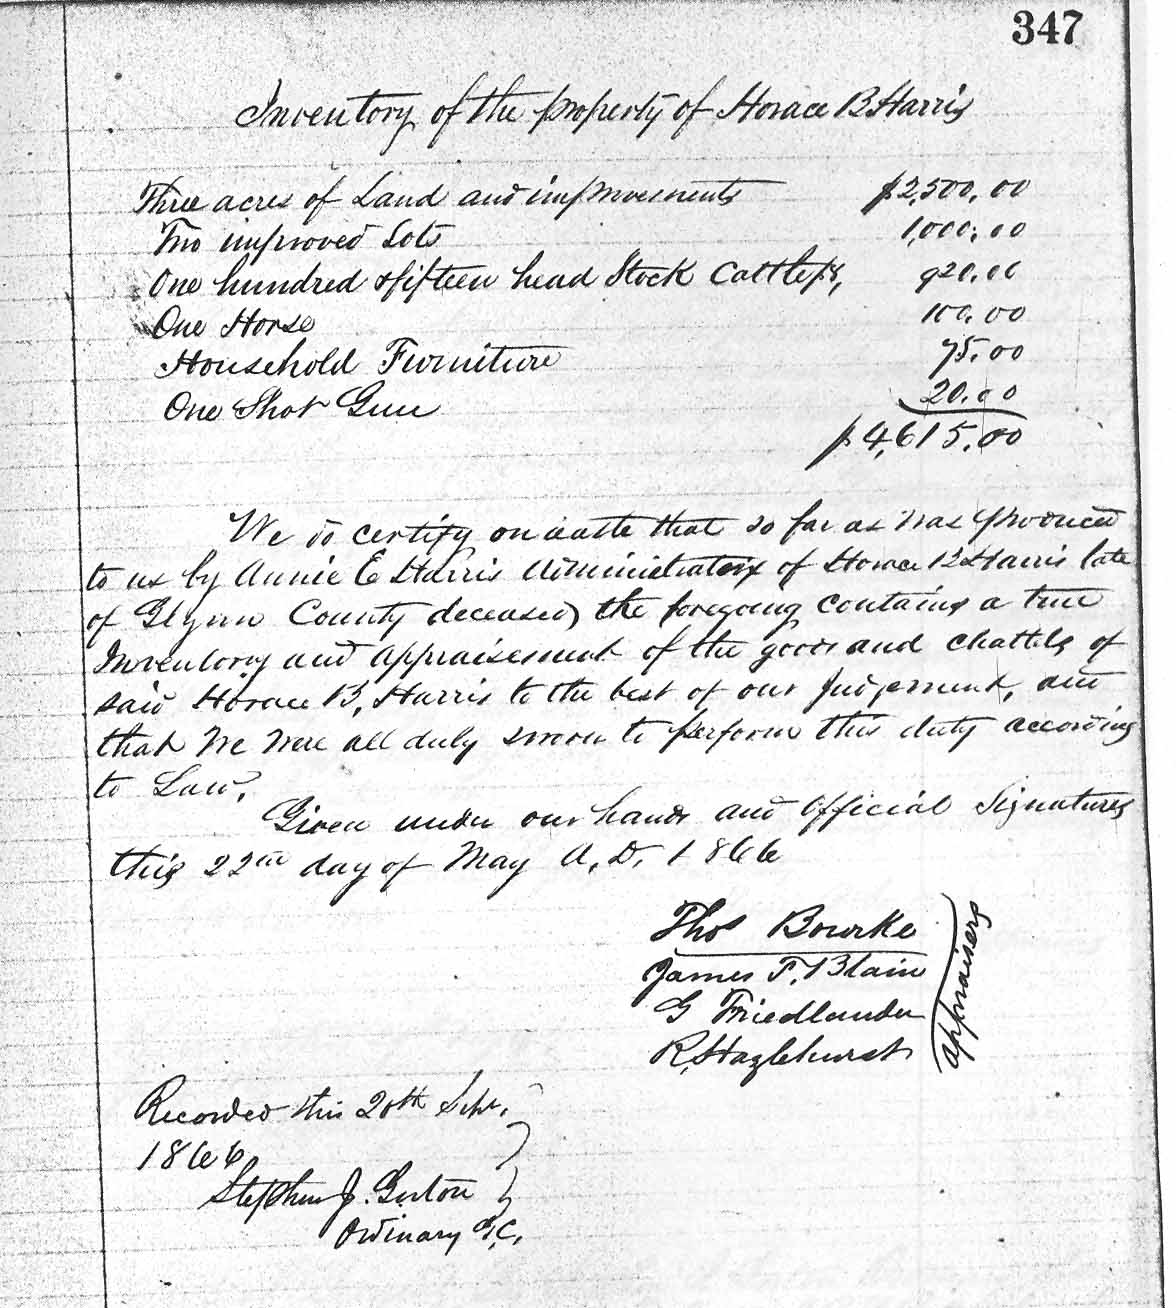 347
Inventory of the property of Horace B Harris
Three acres of Land and improvements $2,500.00
Two improved Lots 1,000.00
One hundred & fifteen head Stock Cattle $8, 920.00
One Horse 100.00
Household Furniture 75.00
One Shot Gun 20.00
$4,615.00
We do certify on oath that so far as was produced
to us by Annie E Harris Administratrix of Horace B Harris late
of Glynn County deceased, the foregoing contains a true
Inventory and appraisement of the goods and chattels of
said Horace B. Harris to the best of our Judgement, and
that we were all duly sworn to perform this duty according
to Law.
Given under our hands and Official Signatures
this 22nd day of May A.D. 1866
Thos Bourke
James T. Blain
G Friedlander
R. Hazlehurst
appraisers
Recorded this 20th Sept.
1866
Stephen J. Gorton
Ordinary G.C.